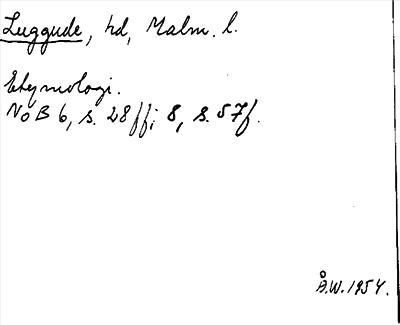 Luggude, hd, Malm. l.
Etymologi.
NoB 6, s. 28 ff; 8, s. 57 f.
Å.W. 1954.